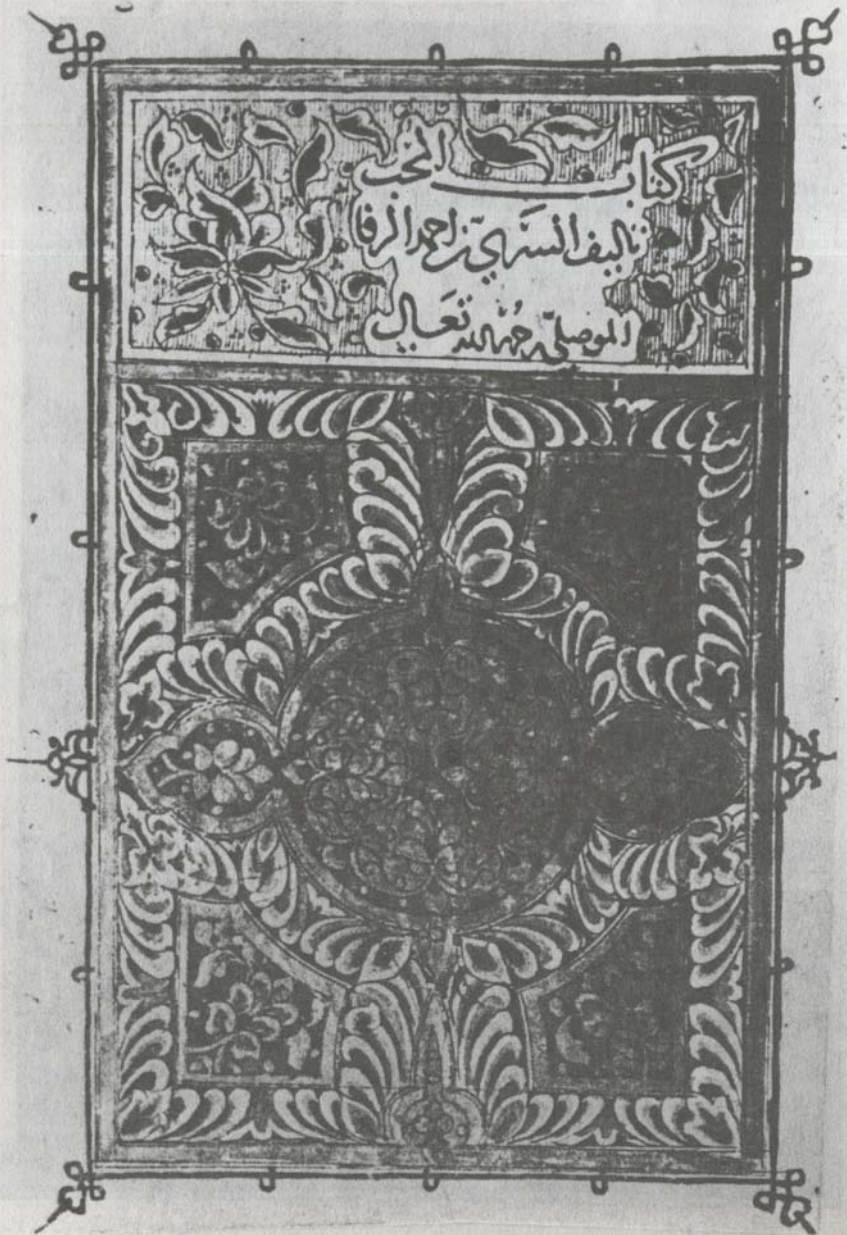 كتاب المحب
تاليف السَّريّ بن احمد الرفا
الموصليّ رحمه الله تعَالى